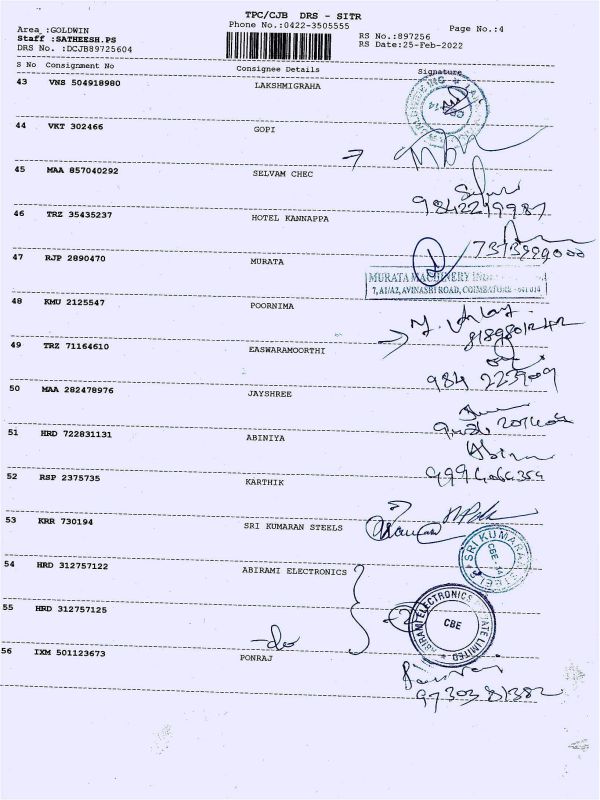 TPC/CJB DRS - SITR
Area :GOLDWIN
Phone No.:0422-3505555
Page No.:4
Staff :SATHEESH.PS
RS No.:897256
DRS No. :DCJB89725604
RS Date:25-Feb-2022
S No Consignment No Consignee Details Signature
43 VNS 504918980 LAKSHMIGRAHA
44 VKT 302466 GOPI
45 MAA 857040292 SELVAM CHEC
9842249987
46 TRZ 35435237 HOTEL KANNAPPA
7373999000
47 RJP 2890470 MURATA
MURATA MACHINERY
7, A1/A2, AVINASHI ROAD, COIMBATORE - 641 014
48 KMU 2125547 POORNIMA
8189801242
49 TRZ 71164610 EASWARAMOORTHI
984 2239009
50 MAA 282478976 JAYSHREE
51 HRD 722831131 ABINIYA
Abinaya
52 RSP 2375735 KARTHIK
53 KRR 730194 SRI KUMARAN STEELS
SRI KUMARAN STEELS
CBE-14
54 HRD 312757122 ABIRAMI ELECTRONICS
55 HRD 312757125
-do
ABIRAMI ELECTRONICS PRIVATE LIMITED
CBE
56 IXM 501123673 PONRAJ
9730381382